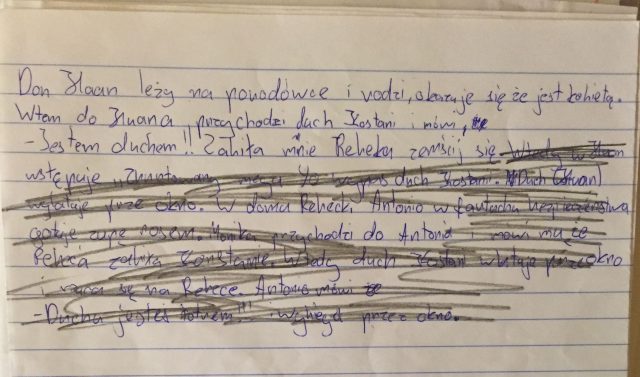 Don Huan leży na porodówce i rodzi, okazuje się że jest kobietą.
Wtem do Huana przychodzi duch Kostani i mówi,
- Jestem duchem!! Zabiła mnie Rebeka zemścij się. Wtedy w Huan
wstępuje duch Kostani. Duch (Huan)
wylatuje prze okno. W domu Rebecki Antonio w fartuchu
gotuje zupę nosem. Monika przychodzi do Antona mówi mu że
Rebeca zabiła Konstanie. Wtedy duch Kostani wlatuje prze okno
i rzuca się na Rebece. Antonio mówi
- Duchu jesteś !!! i wybiega przez okno.